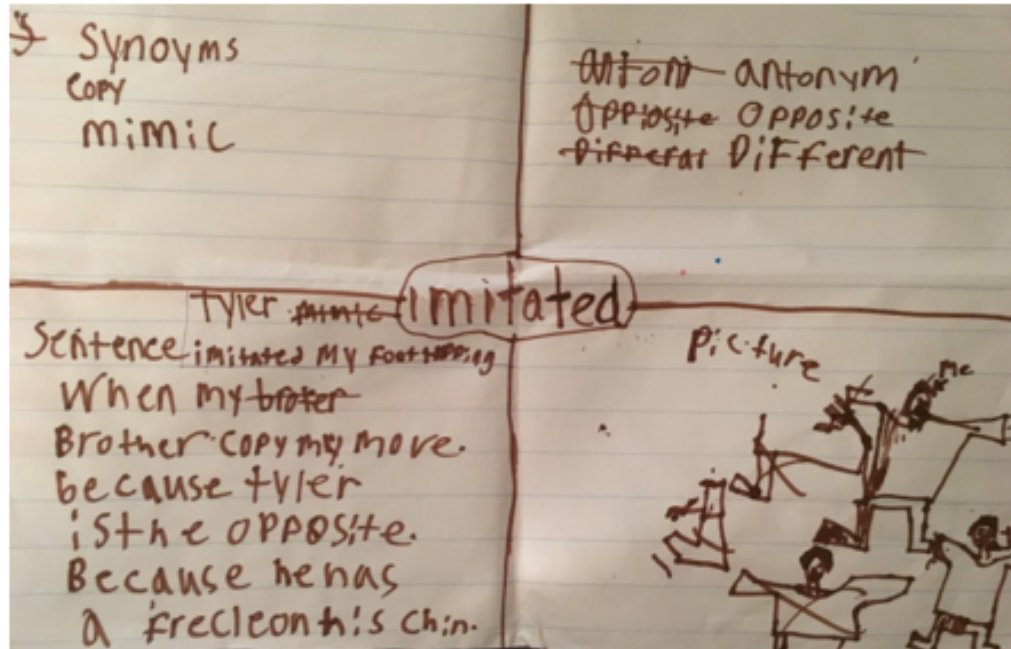 Synoyms
copy
mimic
antoni antonym
Oppiosite Opposite
Differat Different
imitated
Tyler mimic
Sentence imitated My Foot tapping
When my broter
Brother copy my move.
because tyler
is the opposite.
Because he has
a frecleon his chin.
picture
Me